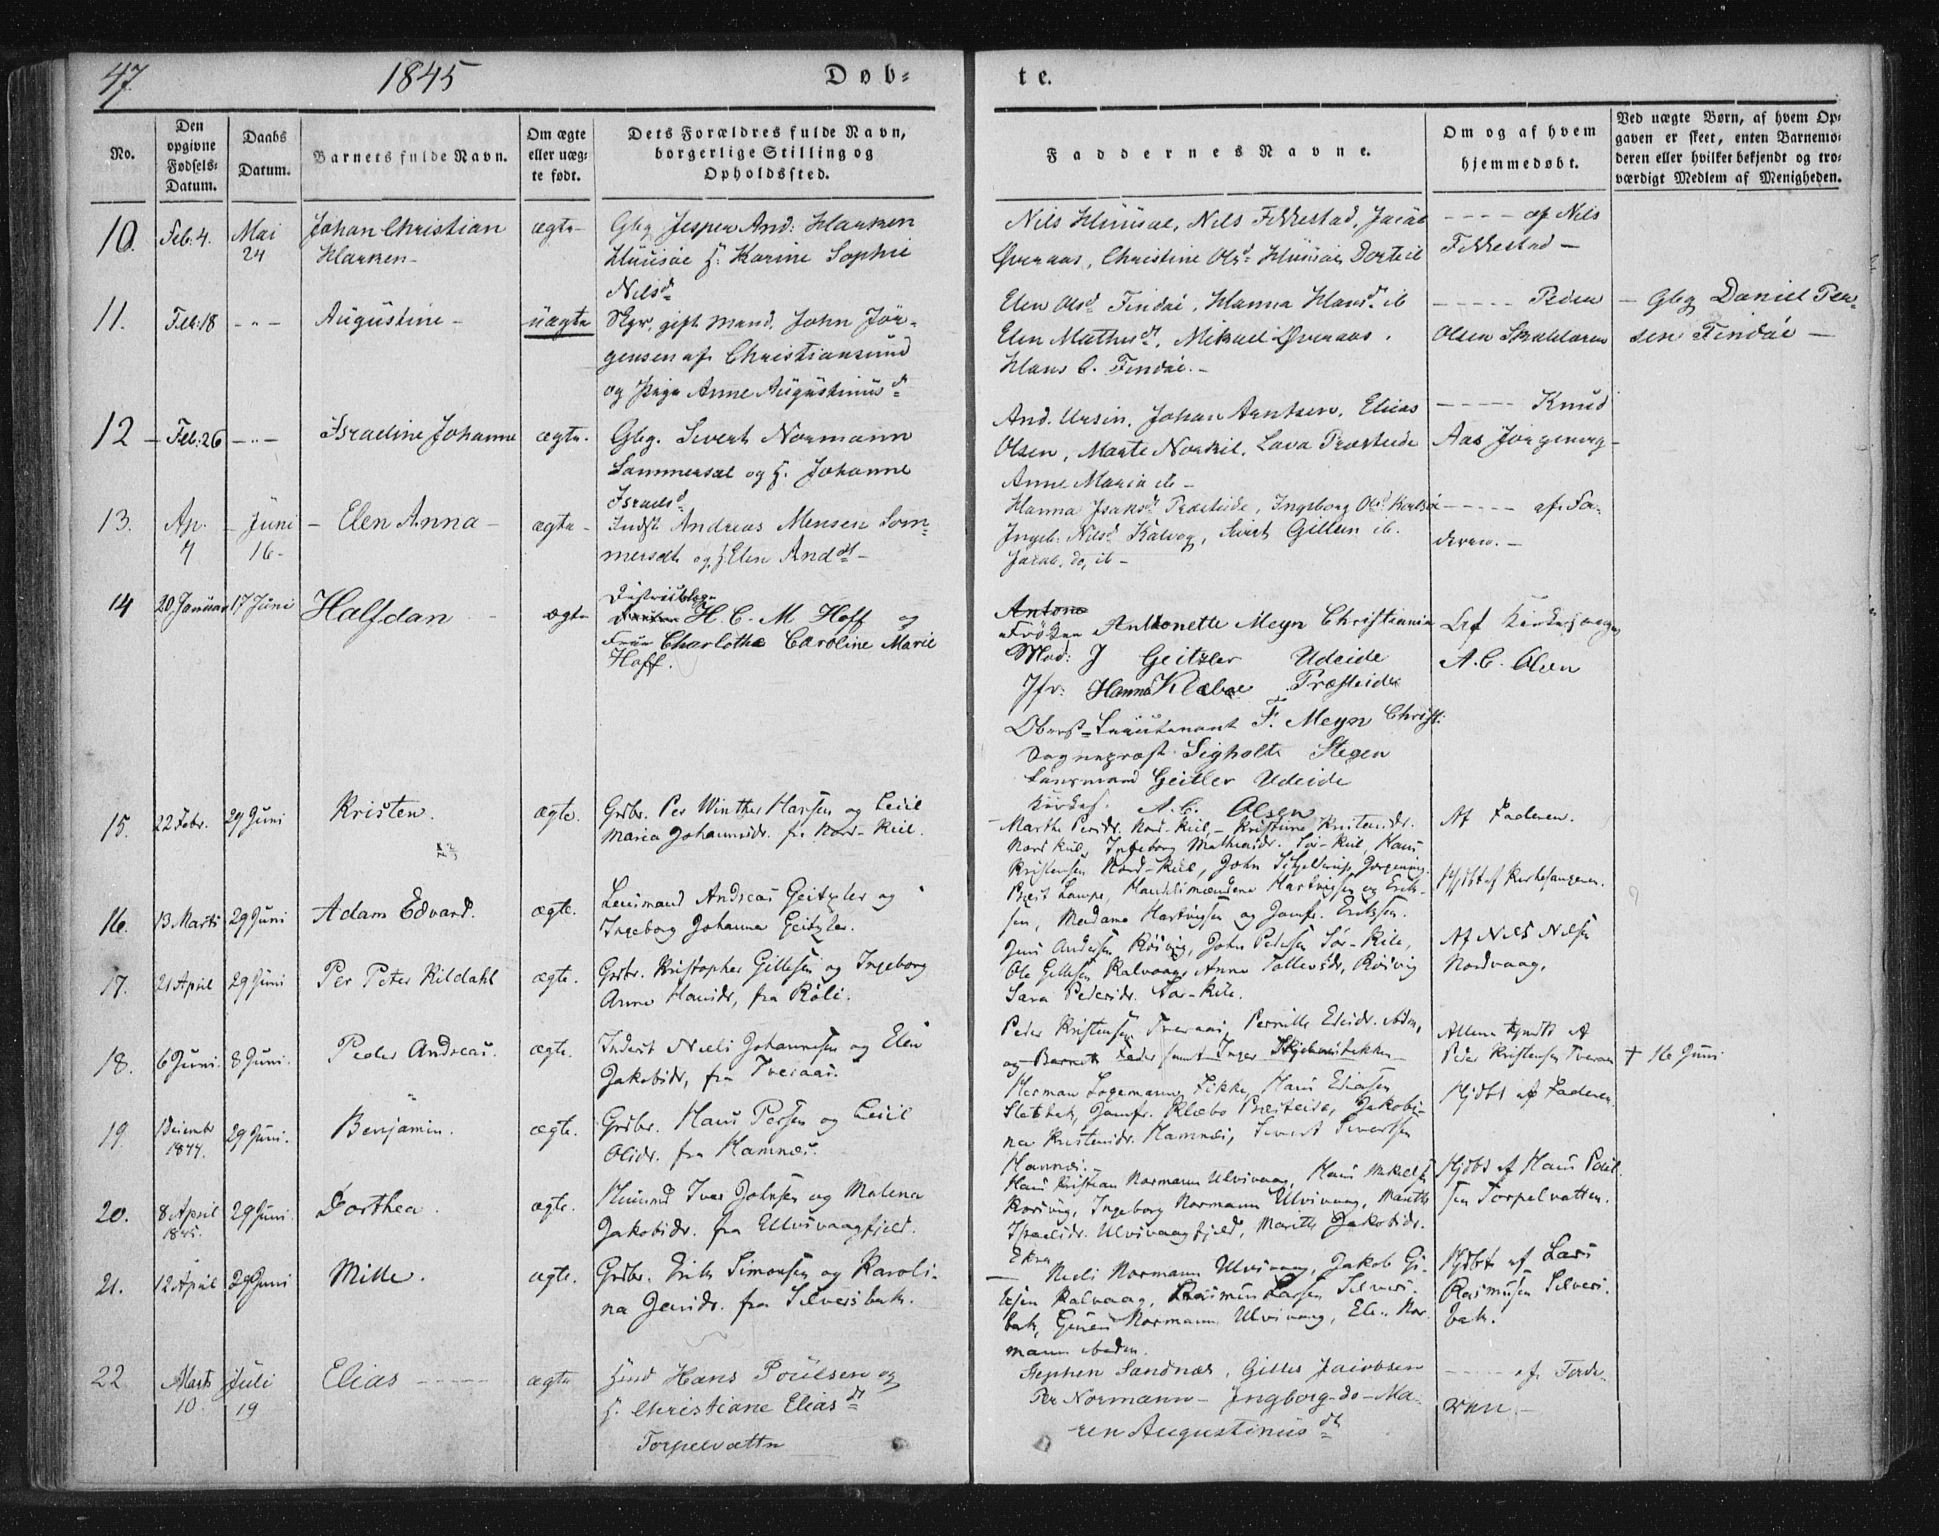 47 1845 Døb- te.
No.
Den opgivne Fødsels-Datum.
Daabs Datum.
Barnets fulde Navn.
Om ægte eller uæg-te født.
Dets Forældres fulde Navn, borgerlige Stilling og Opholdssted.
Faddernes Navne.
Om og af hvem hjemmedøbt.
Ved uægte Børn, af hvem Op-
gaven er skeet, enten Barnemo-
deren eller hvilket bekjendt og tro-
værdigt Medlem af Menigheden.
10. Feb. 4. Mai 24 Johan Christian ægte
Gbg Jesper And:
Karine Sophie
Nilsd
Nils Nils Fikkestad, Jacob
Øveraas, Christine Olsd Dorte ib
---- af Nils
Fikkestad -
11. Feb: 18 - " - Augustine - uægte
gift Mand, John Jør-
gensen af Christiansund
og Pige Anne Augustinusd
Elen Olsd Findøe, Hanna Hansd ib
Elen Mathisd, Mikael Øveraas,
Hans C. Findøe. -
----- Peder
Olsen
- Gbg Daniel Peder-
sen Findøe -
12 - Feb: 26 - " - Israeline Johanne ægte.
Gbg. Sivert Normann
Sommersæt og H. Johanne
Israelsd
And. Ursin, Johan Arntsen, Elias
Olsen, Marte Lava Præsteide
Anne Maria ib -
----- Knud
Aas
13. Ap. 7 - Juni 16 - - Elen Anna - ægte
Indst Andreas Mensen Som-
mersæt og H Elen Andd -
Hanna Isaksd Præsteide, Ingeborg Olsd
Ingeb: Nilsd Kalvog, Sivert Gillesen ib.
Jacob do, ib -
----- af Fa-
deren. -
14 20 Januar 17 Juni Halfdan ægte
Districtslæge
H. C. M Hoff og
Frue Charlotha Caroline Marie
Hoff.
Antone
Frøken Anthonette Meyn Christiania
Mad: J Geitzler Udeide
Jfr: Hanna Klæboe Præsteide
Oberst-Lieutenant F. Meyn Christ:
Sognepræst Sigholt Stegen
Lensmand Geitler Udeide
Kirkes. A. C. Olsen
Af Kirkesanger
A. C. Olsen
15. 22 Febr. 29 Juni Kristen. ægte.
Grdbr. Per Winther Hansen og Cecil
Maria Johannesdr. fra Nord-Kiil.
Marthe Persdr. Nord-Kiil, - Kristine Kristensdr.
Nord Kiil, Ingeborg Mathisdr. Sør-Kiil, Hans
Kristensen Nord-Kiil, John Schjelderup Jørgensen.
Af Faderen.
16. 13 Marts 29 Juni Adam Edvard. ægte.
Lensmand Andreas Geitzler og
Ingeborg Johanna Geitzler.
Præst Lampe, Handelsmændene Hartvigsen og Erik-
sen, Madame Hartvigsen og Jomfr. Eriksen.
Hjdbt af Kirkesangeren.
17. 21 April 29 Juni Per Peter Kildahl ægte.
Grdbr. Kristopher Gillesen og Ingeborg
Anne Hansdr, fra Røli.
Jens Andersen Røsvig, John Pedersen Sør-Kile,
Ole Gillesen Kalvaag, Anne Tollevsdr, Røsvig
Sara Pedersdr. Sør-Kile.
Af Niels Nilsen
Nordvaag.
18. 6 Juni. 8 Juni. Peder Andreas. ægte.
Inderst Niels Johannesen og Elen
Jakobsdr, fra Tveraas.
Peder Kristensen Tveraas, Pernille
og Barnets Fader samt Inger
Peder Kristensen Tveraas
† 16 Juni
19. December 1844. 29 Juni. Benjamin. ægte.
Grdbr. Hans Persen og Cecil
Olsdr. fra Hamnes.
Herman Logemann, Fikke, Hans Eliasen
Sletbak, Jomfr. Klæbo Præsteide, Jakobi-
na Kristensdr. Hamnes, Sivert Sivertsen
Hamnes. -
Hjdbt af Faderen.
20. 8 April 1845. 29 Juni. Dorthea. ægte.
Huusmd Iver Johnsen og Malena
Jakobsdr. fra Ulvsvaagfjeld.
Hans Kristian Normann Ulvsvaag, Hans Mikelsen
Korsvig, Ingeborg Normann Ulvsvaag, Marith
Israelsdr. Ulvsvaagfjeld, Marith Jakobsdr.
Hjdbt af Hans Poul-
sen Torpelvatten.
21. 12 April 29 Juni Mille. ægte.
Grdbr. Erik Simonsen og Karoli-
na Jensdr. fra Silversbak.
Niels Normann Ulvsvaag, Jakob Gi-
lesen Kalvaag, Rasmus Larsen Silvers-
bak, Normann Ulvsvaag, Nor-
mann ibidem.
Hjdbt af Lars
Rasmusen Silvers-
bak.
22. Marts 10 Juli 19 Elias ----- ægte
Hans Poulsen og
H. Christiane Eliasd
Torpelvattn
Stephen Sandnæs, Gilles Jacobsen
Per Normann - Ingborg do - Ma-
ren Augustinusd
---- af Fade-
ren -